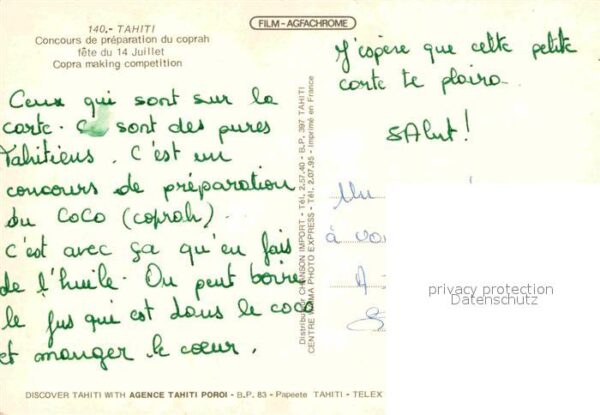 140.- TAHITI
Concours de préparation du coprah
fête du 14 Juillet
Copra making competition
FILM - AGFACHROME
Ceux qui sont sur la
carte. Ce sont des pures
Tahitiens. C'est un
concours de préparation
du coco (coprah).
c'est avec ça qu'en fais
de l'huile. On peut boire
le jus qui est dans le coco
et manger le cœur.
J'espère que cette petite
carte te plaira.
SAlut!
Distributor CHANSON IMPORT - Tél. 2.57.40 - B.P. 397 TAHITI
CENTRE MAMA PHOTO EXPRESS - Tél. 2.07.95 - Imprimé en France
Un
à
privacy protection
Datenschutz
DISCOVER TAHITI WITH AGENCE TAHITI POROI - B.P. 83 - Papeete TAHITI - TELEX